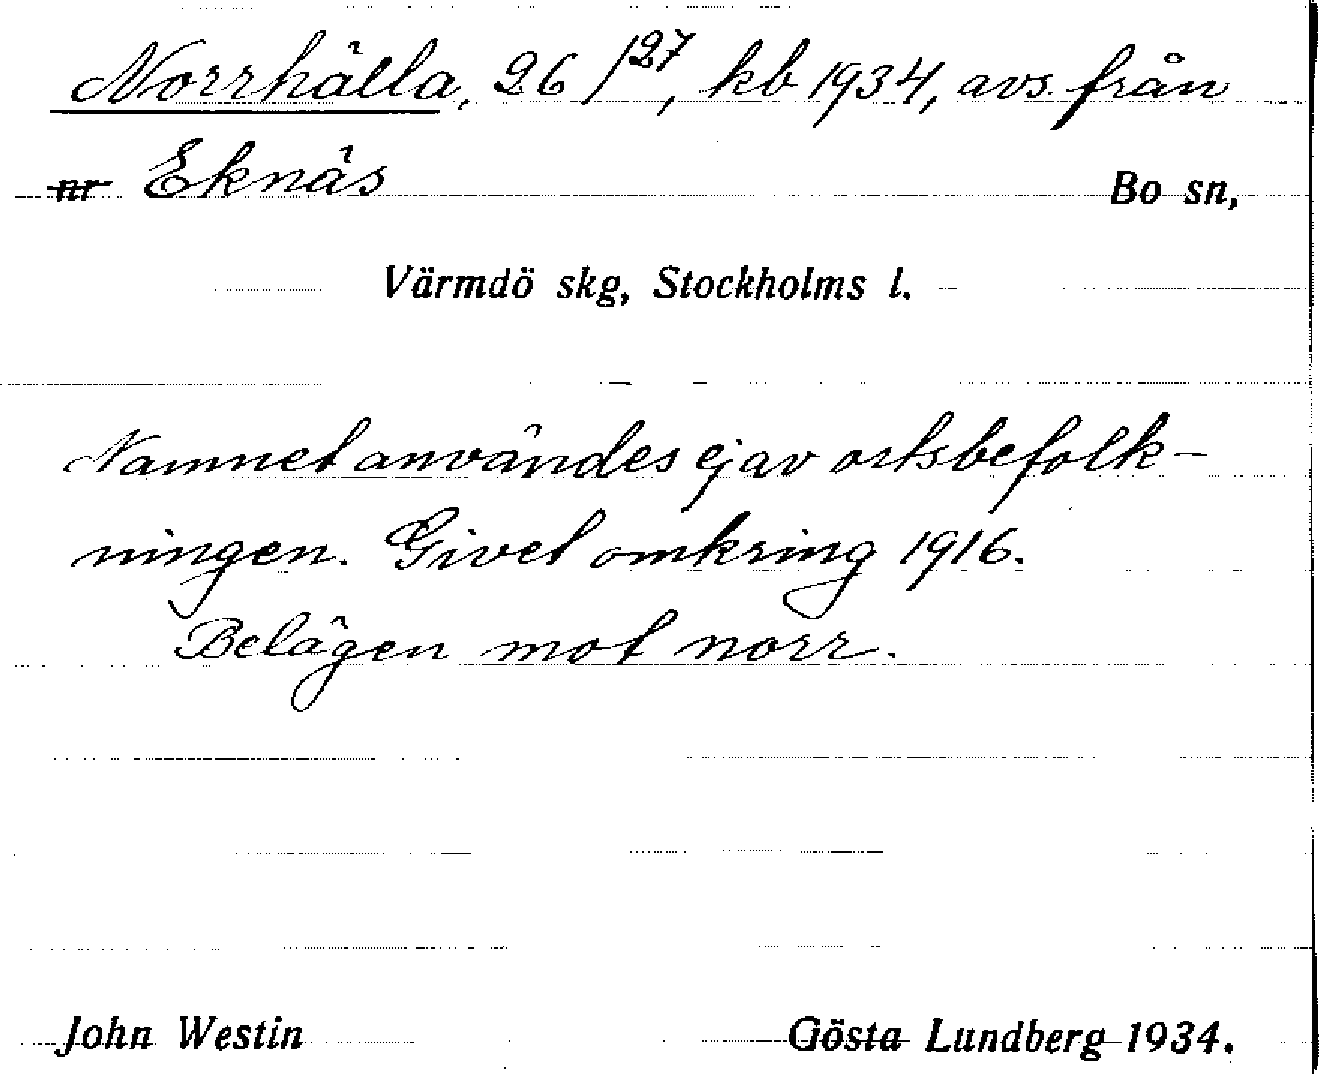 Norrhälla, 26/27, kb 1934, avs. från
nr Eknäs Bo sn,
Värmdö skg, Stockholms l.
Namnet användes ej av ortsbefolk-
ningen. Givet omkring 1916.
Belägen mot norr.
John Westin Gösta Lundberg 1934.